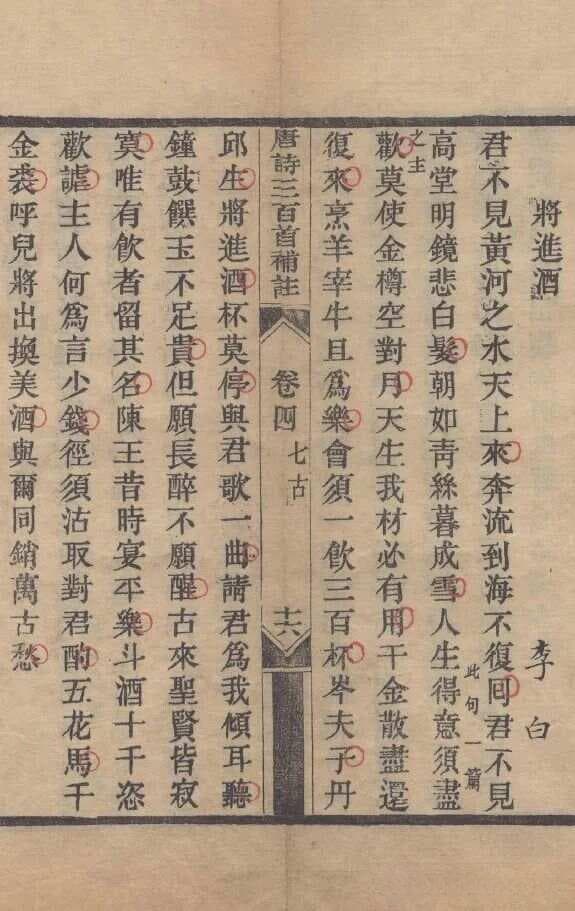 將進酒 李白
君不見黃河之水天上來奔流到海不復囘君不見
高堂明鏡悲白髮朝如靑絲暮成雪人生得意須盡
此句一篇
之主
歡莫使金樽空對月天生我材必有用千金散盡還
復來烹羊宰牛且爲樂會須一飲三百杯岑夫子丹
唐詩三百首補註 卷四 七古 十六
邱生將進酒杯莫停與君歌一曲請君爲我傾耳聽
鐘鼓饌玉不足貴但願長醉不願醒古來聖賢皆寂
寞唯有飲者留其名陳王昔時宴平樂斗酒十千恣
歡謔主人何爲言少錢徑須沽取對君酌五花馬千
金裘呼兒將出換美酒與爾同銷萬古愁